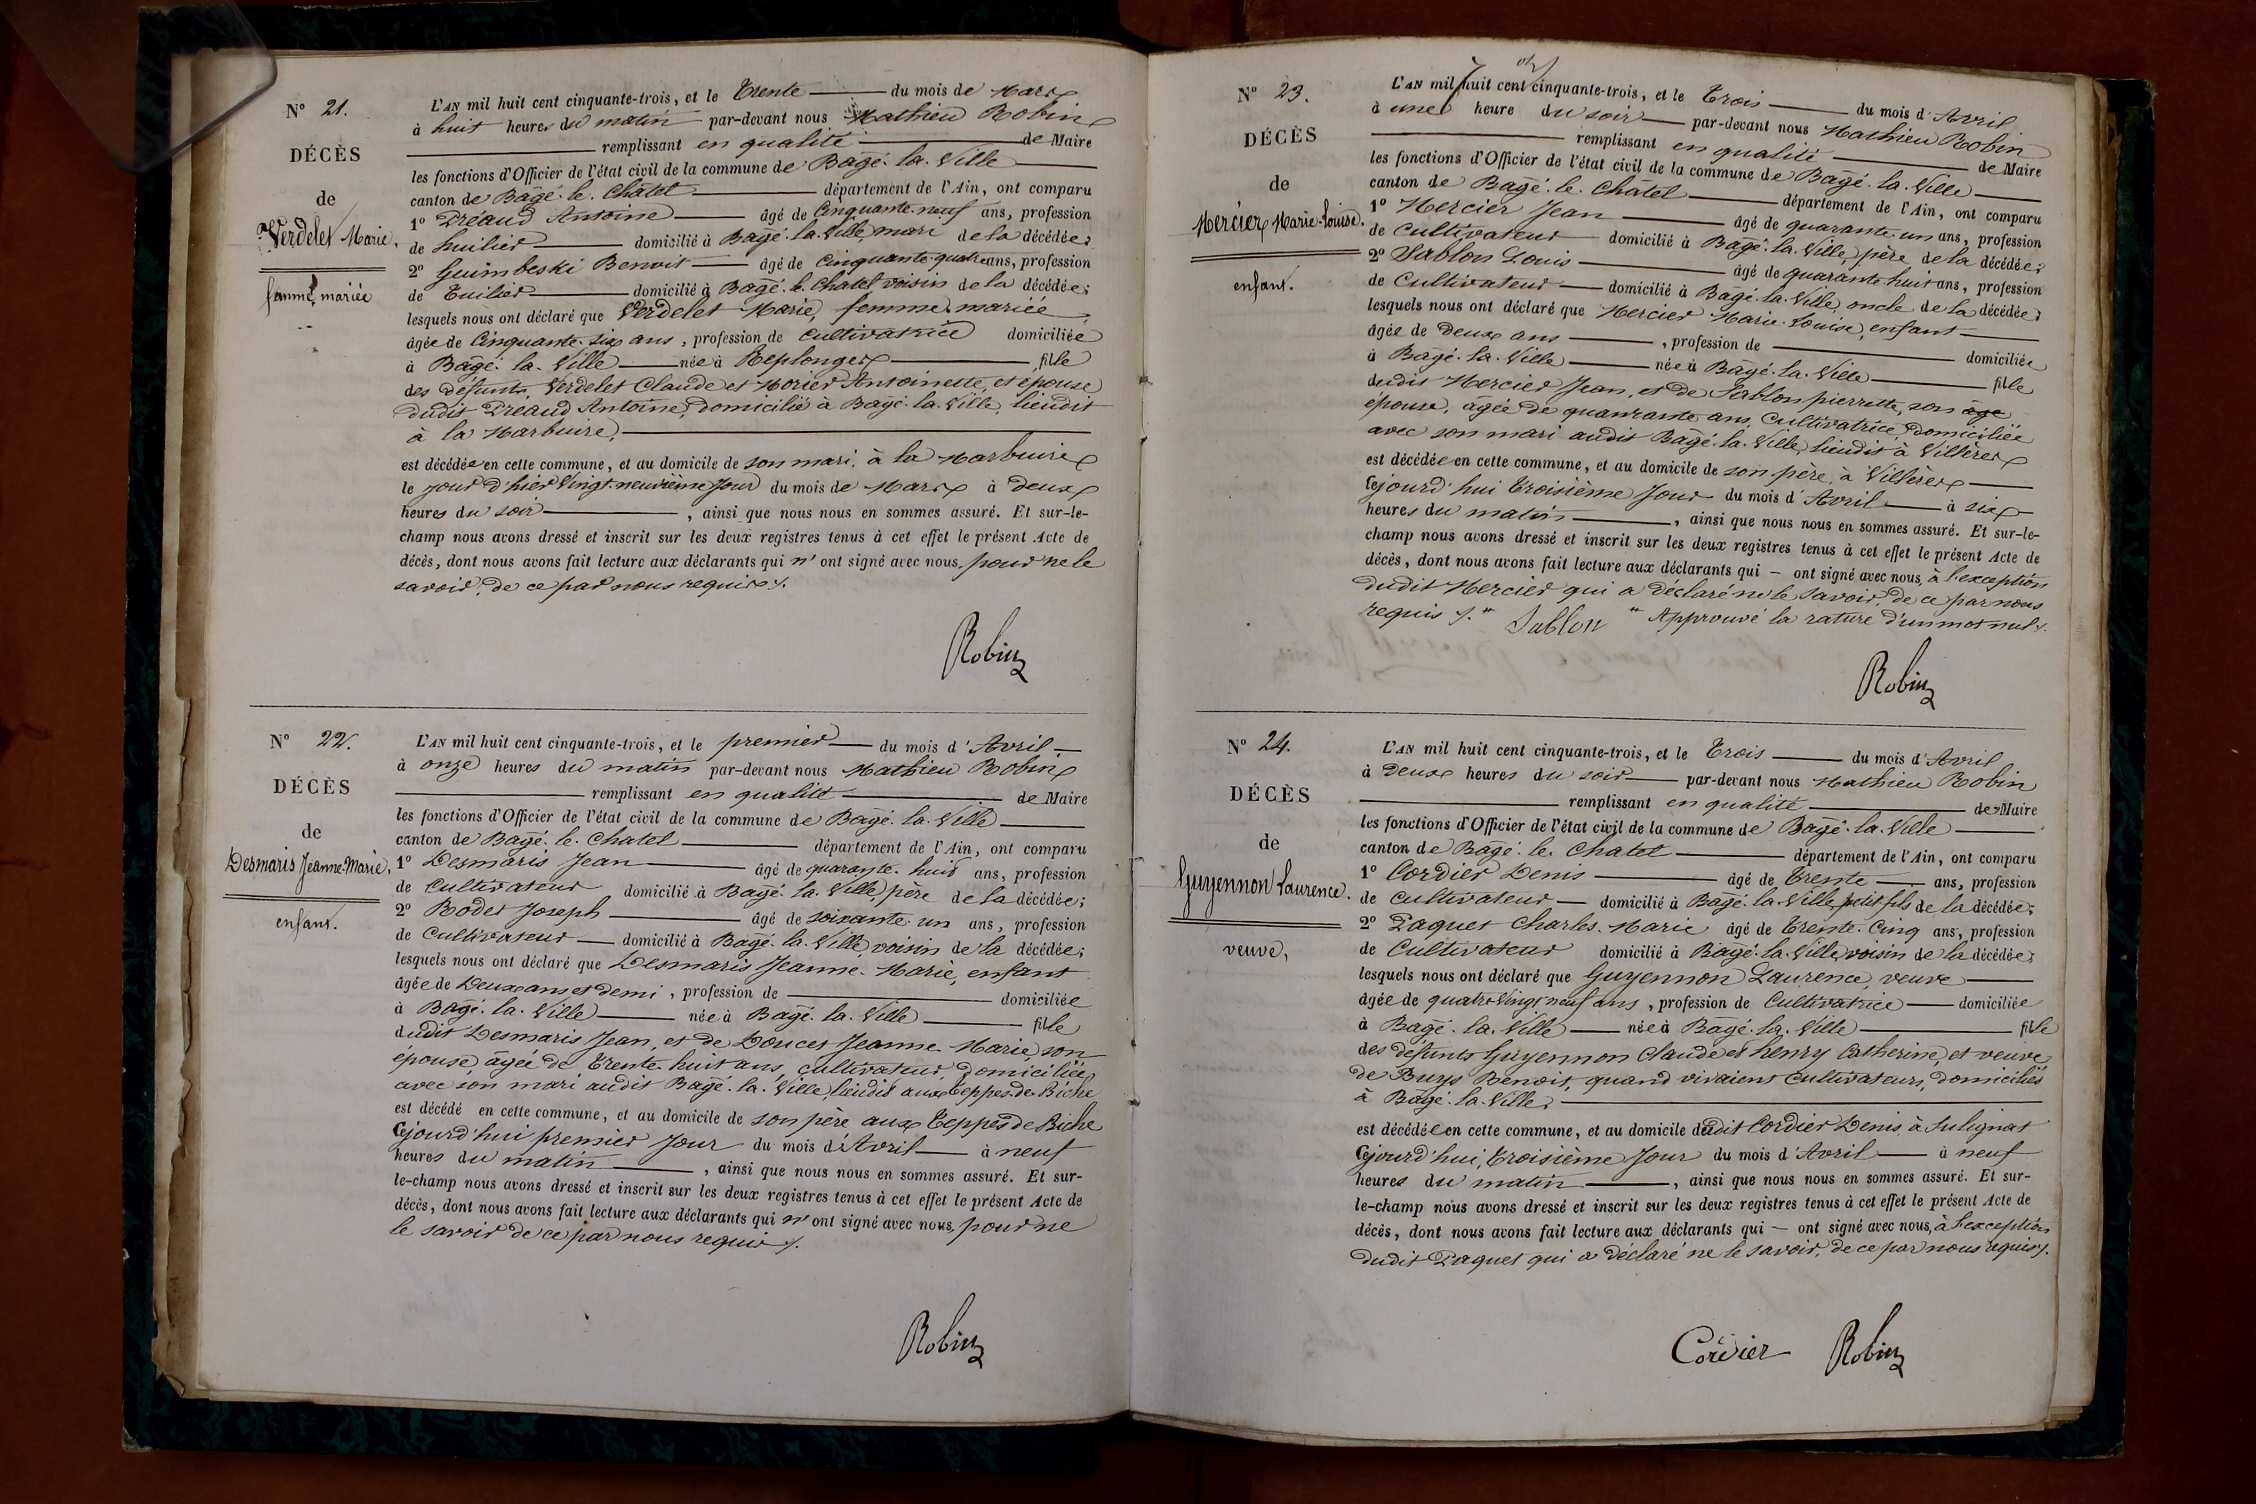 N° 21.
DÉCÈS
de
Verdelet Marie,
femme mariée
L'AN mil huit cent cinquante-trois, et le Trente du mois de Mars
à huit heures du matin par-devant nous Mathieu Robin
remplissant en qualité de Maire
les fonctions d'Officier de l'état civil de la commune de Bagé-la-Ville
canton de Bagé-le-Châtel département de l'Ain, ont comparu
1° Dréaud Antoine âgé de Cinquante-neuf ans, profession
de huilier domicilié à Bagé-la-Ville, mari de la décédée;
2° Guimbeski Benoit âgé de Cinquante-quatre ans, profession
de Tuilier domicilié à Bagé-le-Chatel voisin de la décédée;
lesquels nous ont déclaré que Verdelet Marie, femme mariée
âgée de Cinquante-six ans, profession de Cultivatrice domiciliée
à Bagé-la-Ville née à Replonges fille
des défunts, Verdelet Claude et Morier Antoinette, et épouse
dudit Dréaud Antoine, domicilié à Bagé-la-Ville, lieudit
à la Marbuire,
est décédée en cette commune, et au domicile de son mari, à la Marbuire
le jour d'hier Vingt-neuvième Jour du mois de Mars à deux
heures du soir, ainsi que nous nous en sommes assuré. Et sur-le-
champ nous avons dressé et inscrit sur les deux registres tenus à cet effet le présent Acte de
décès, dont nous avons fait lecture aux déclarants qui n'ont signé avec nous, pour ne le
savoir, de ce par nous requis ./.
Robin
N° 22.
DÉCÈS
de
Desmaris Jeanne-Marie,
enfant.
L'AN mil huit cent cinquante-trois, et le premier du mois d'Avril
à onze heures du matin par-devant nous Mathieu Robin
remplissant en qualité de Maire
les fonctions d'Officier de l'état civil de la commune de Bagé-la-Ville
canton de Bagé-le-Chatel département de l'Ain, ont comparu
1° Desmaris Jean âgé de quarante-huit ans, profession
de Cultivateur domicilié à Bagé-la-Ville, père de la décédée;
2° Rodet Joseph âgé de soixante-un ans, profession
de Cultivateur domicilié à Bagé-la-Ville, voisin de la décédée;
lesquels nous ont déclaré que Desmaris Jeanne-Marie, enfant
âgée de Deux ans et demi, profession de domiciliée
à Bagé-la-Ville née à Bagé-la-Ville fille
dudit Desmaris Jean, et de Doucet Jeanne-Marie, son
épouse, âgée de Trente-huit ans, cultivateur, domiciliée
avec son mari audit Bagé-la-Ville, lieudit aux Teppes-de-Biche
est décédé en cette commune, et au domicile de son père aux Teppes de Biche
Cejourd'hui premier Jour du mois d'Avril à neuf
heures du matin, ainsi que nous nous en sommes assuré. Et sur-
le-champ nous avons dressé et inscrit sur les deux registres tenus à cet effet le présent Acte de
décès, dont nous avons fait lecture aux déclarants qui n'ont signé avec nous, pour ne
le savoir de ce par nous requis ./.
Robin
N° 23.
DÉCÈS
de
Mercier Marie-Louise.
enfant.
L'AN mil huit cent cinquante-trois, et le Trois du mois d'Avril
à une heure du soir par-devant nous Mathieu Robin
remplissant en qualité de Maire
les fonctions d'Officier de l'état civil de la commune de Bagé-la-Ville
canton de Bagé-le-Châtel département de l'Ain, ont comparu
1° Mercier Jean âgé de quarante-un ans, profession
de Cultivateur domicilié à Bagé-la-Ville, père de la décédée;
2° Sablon Louis âgé de quarante-huit ans, profession
de Cultivateur domicilié à Bagé-la-Ville, oncle de la décédée;
lesquels nous ont déclaré que Mercier Marie-Louise, enfant
âgée de Deux ans, profession de domiciliée
à Bagé-la-Ville née à Bagé-la-Ville fille
dudit Mercier Jean, et de Sablon pierrette, son age
épouse, âgée de quanrante ans, Cultivatrice, domiciliée
avec son mari audit Bagé-la-Ville, lieudit à Villères
est décédée en cette commune, et au domicile de son père, à Villères
Cejourd'hui Troisième Jour du mois d'Avril à six
heures du matin, ainsi que nous nous en sommes assuré. Et sur-le-
champ nous avons dressé et inscrit sur les deux registres tenus à cet effet le présent Acte de
décès, dont nous avons fait lecture aux déclarants qui – ont signé avec nous, à l'exception
dudit Mercier qui a déclaré ne le savoir, de ce par nous
requis ./. " Sablon " Approuvé la rature d'un mot nul ./.
Robin
N° 24.
DÉCÈS
de
Guyennon Laurence.
veuve,
L'AN mil huit cent cinquante-trois, et le Trois du mois d'Avril
à Deux heures du soir par-devant nous Mathieu Robin
remplissant en qualité de Maire
les fonctions d'Officier de l'état civil de la commune de Bagé-la-Ville
canton de Bagé-le-Chatel département de l'Ain, ont comparu
1° Cordier Denis âgé de Trente ans, profession
de Cultivateur domicilié à Bagé-la-Ville, petit fils de la décédée;
2° Paquet Charles-Marie âgé de Trente-Cinq ans, profession
de Cultivateur domicilié à Bagé-la-Ville, voisin de la décédée;
lesquels nous ont déclaré que Guyennon Laurence, veuve
âgée de quatre-Vingt neuf ans, profession de Cultivatrice domiciliée
à Bagé-la-Ville née à Bagé-la-Ville fille
des défunts Guyennon Claude et henry Catherine, et veuve
de Buys Benoit, quand vivaient Cultivateurs, domiciliés
à Bagé-la-Ville,
est décédée en cette commune, et au domicile dudit Cordier Denis, à Sulignat
Cejourd'hui, Troisième Jour du mois d'Avril à neuf
heures du matin, ainsi que nous nous en sommes assuré. Et sur-
le-champ nous avons dressé et inscrit sur les deux registres tenus à cet effet le présent Acte de
décès, dont nous avons fait lecture aux déclarants qui – ont signé avec nous, à l'exception
dudit Paquet qui a déclaré ne le savoir, de ce par nous requis ./.
Cordier Robin